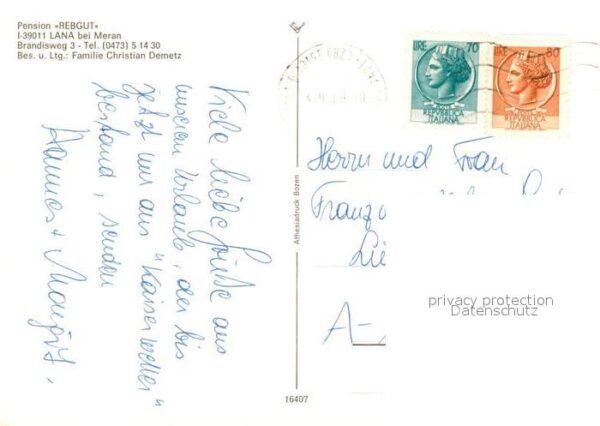 Pension »REBGUT«
I-39011 LANA bei Meran
Brandisweg 3 - Tel. (0473) 5 14 30
Bes. u. Ltg.: Familie Christian Demetz
Viele liebe Grüße aus
unserem Urlaub, der bis
jetzt nur aus "Kaiserwetter"
bestand, senden
Hannes + Margit.
Athesiadruck Bozen
16407
LIRE 70
REPUBBLICA
ITALIANA
LIRE 80
REPUBBLICA
ITALIANA
Herrn und Frau
Franz
A-
privacy protection
Datenschutz